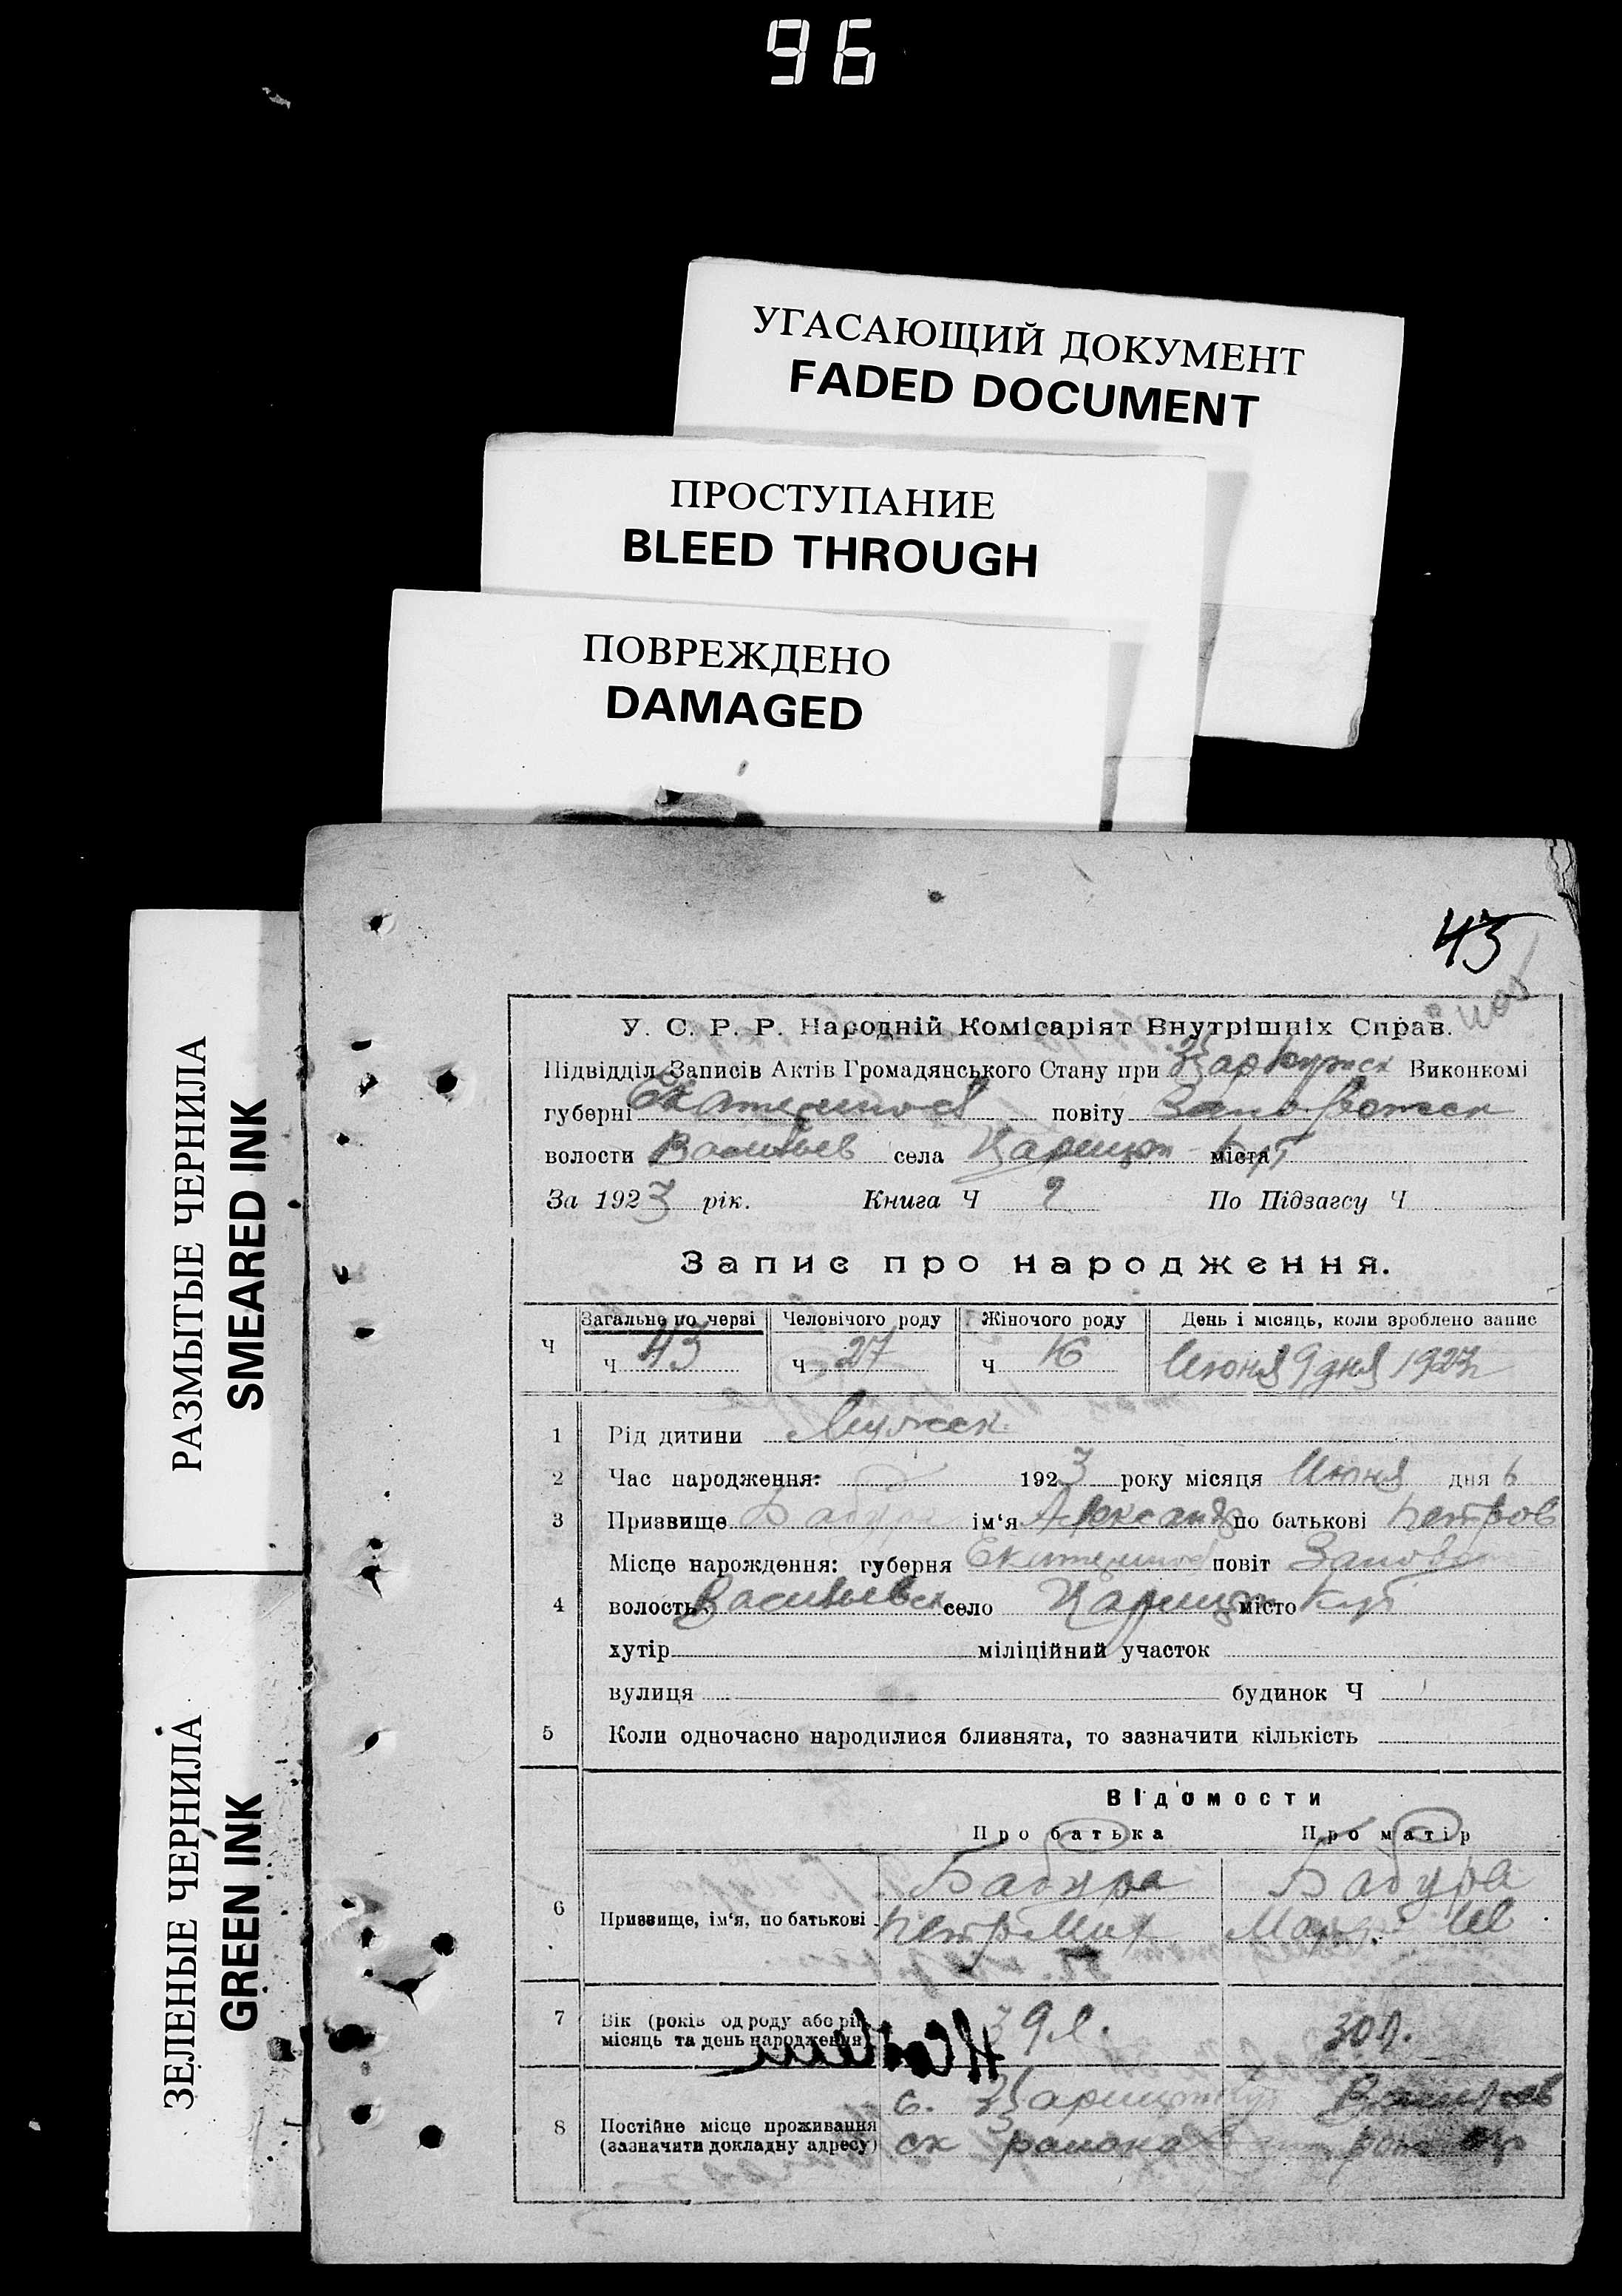 96
УГАСАЮЩИЙ ДОКУМЕНТ
FADED DOCUMENT
ПРОСТУПАНИЕ
BLEED THROUGH
ПОВРЕЖДЕНО
DAMAGED
РАЗМЫТЫЕ ЧЕРНИЛА
SMEARED INK
ЗЕЛЕНЫЕ ЧЕРНИЛА
GREEN INK
43
У. С. Р. Р. Народній Комісаріят Внутрішніх Справ.
Підвідділ Записів Актів Громадянського Стану при Виконкомі
губерні Екатеринослав повіту
волости села Царицын - міста
За 1923 рік. Книга Ч 2 По Підзагсу Ч
Запис про народження.
Ч Загальне по черві Человічого роду Жіночого роду День і місяць, коли зроблено запис
Ч 43 Ч 27 Ч 16 Июня 9 дня 1923
1 Рід дитини Мужск.
2 Час народження: 1923 року місяця Июня дня 6
3 Призвище Бабура ім'я Александр по батькові Петров
Місце нарождення: губерня повіт
4 волость Васильевск село місто Кут
хутір міліційний участок
вулиця будинок Ч
5 Коли одночасно народилися близнята, то зазначити кількість
Відомости
Про батька Про матір
6 Призвище, ім'я, по батькові Бабура Бабура
Петр Мих
7 Вік (років од роду або рік, місяць та день народження) 39 л. 30 л.
8 Постійне місце проживання (зазначити докладну адресу) с.
ск района